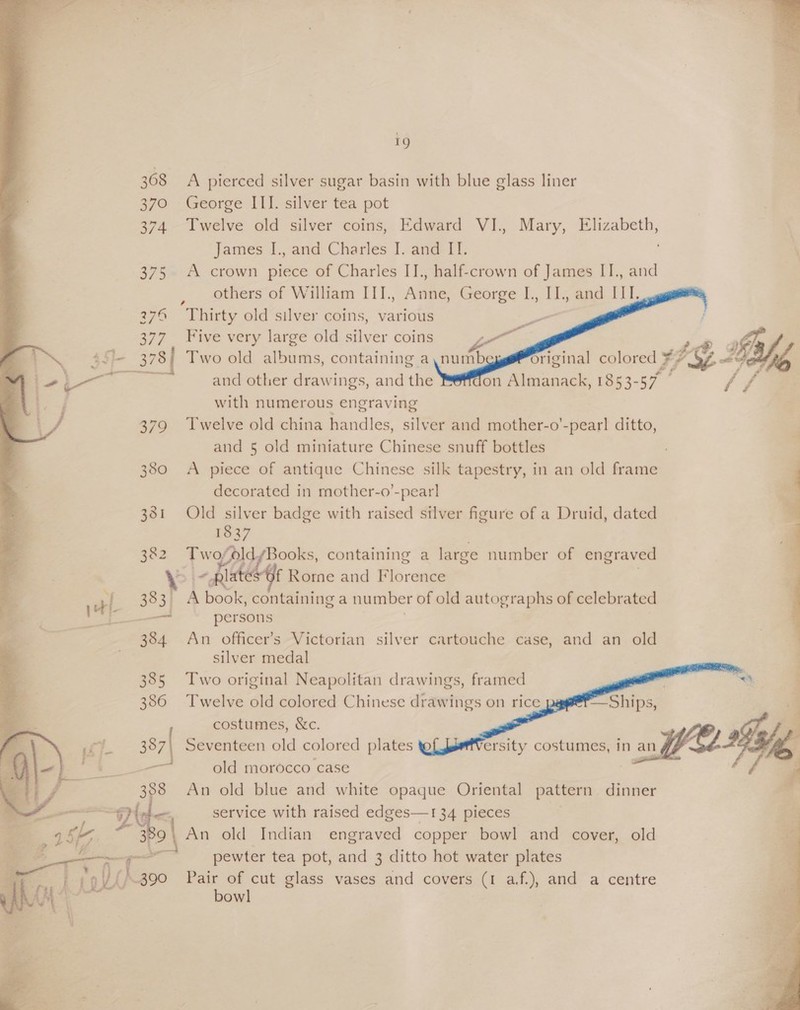 19
368 A pierced silver sugar basin with blue glass liner
370 George III. silver tea pot
374 Twelve old silver coins, Edward VI., Mary, Elizabeth,
James I., and Charles I. and II.
375 A crown piece of Charles II., half-crown of James II., and
others of William III., Anne, George I., II., and III.
376 Thirty old silver coins, various
377 Five very large old silver coins
378 Two old albums, containing a number original colored
and other drawings, and the London Almanack, 1853-57
with numerous engraving
379 Twelve old china handles, silver and mother-o'-pearl ditto,
and 5 old miniature Chinese snuff bottles
380 A piece of antique Chinese silk tapestry, in an old frame
decorated in mother-o'-pearl
381 Old silver badge with raised silver figure of a Druid, dated
1837
382 Two old Books, containing a large number of engraved
plates of Rome and Florence
383 A book, containing a number of old autographs of celebrated
persons
384 An officer's Victorian silver cartouche case, and an old
silver medal
385 Two original Neapolitan drawings, framed
386 Twelve old colored Chinese drawings on rice paper—Ships,
costumes, &c.
387 Seventeen old colored plates of University costumes, in an
old morocco case
388 An old blue and white opaque Oriental pattern dinner
service with raised edges—134 pieces
389 An old Indian engraved copper bowl and cover, old
pewter tea pot, and 3 ditto hot water plates
390 Pair of cut glass vases and covers (1 a.f.), and a centre
bowl